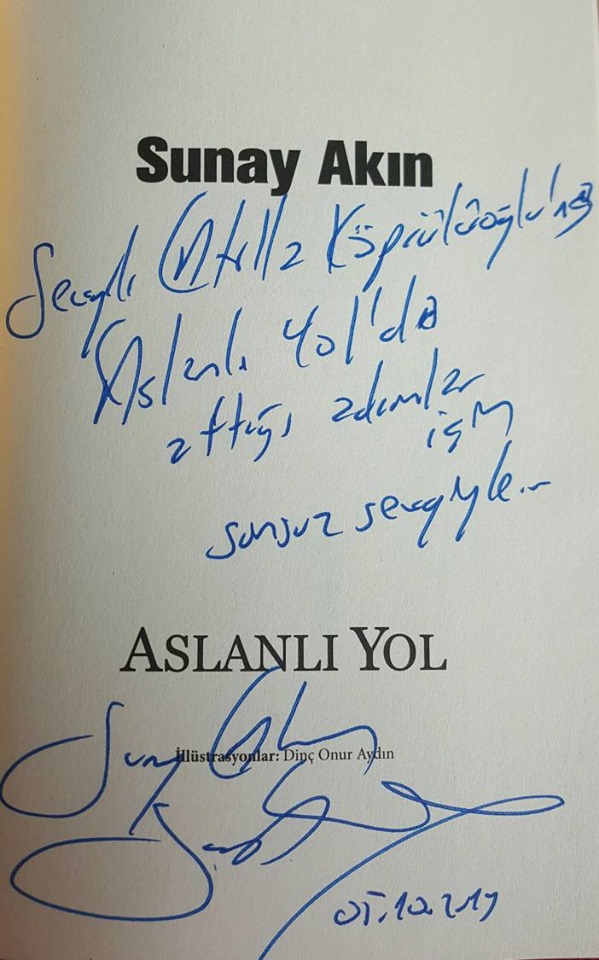 Sunay Akın
Sevgili Atilla Köprülüoğlu'na
Aslanlı Yol'da
attığı adımlar
için
sonsuz sevgiyle...
ASLANLI YOL
Sunay Akın
İllüstrasyonlar: Dinç Onur Aydın
05.10.2019